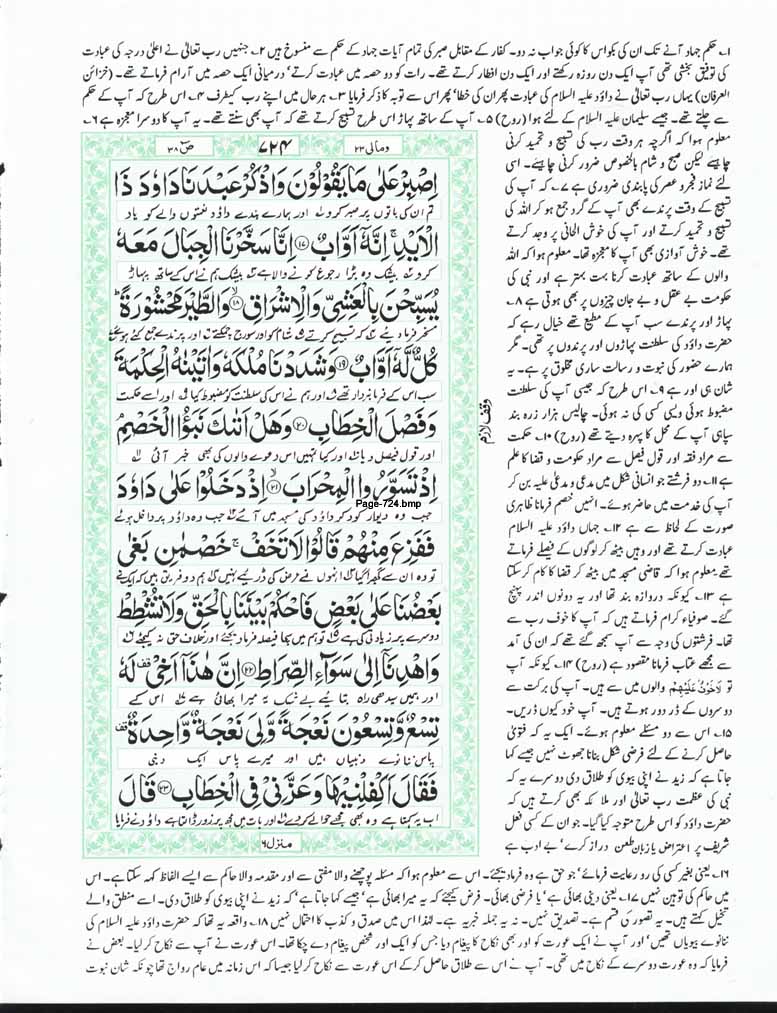 ۱۔ حکم جہاد آنے تک ان کی بکواس کا کوئی جواب نہ دو۔ کفار کے مقابل صبر کی تمام آیات جہاد کے حکم سے منسوخ ہیں ۲۔ جنہیں رب تعالیٰ نے اعلیٰ درجہ کی عبادت
کی توفیق بخشی تھی آپ ایک دن روزہ رکھتے اور ایک دن افطار کرتے تھے۔ رات کو دو حصہ میں عبادت کرتے' درمیانی ایک حصہ میں آرام فرماتے تھے۔ (خزائن
العرفان) یہاں رب تعالیٰ نے داؤد علیہ السلام کی عبادت پھر ان کی خطا' پھر اس سے توبہ کا ذکر فرمایا ۳۔ ہر حال میں اپنے رب کیطرف ۴۔ اس طرح کہ آپ کے حکم
سے چلتے تھے۔ جیسے سلیمان علیہ السلام کے لئے ہوا (روح) ۵۔ آپ کے ساتھ پہاڑ اس طرح تسبیح کرتے تھے کہ آپ بھی سنتے تھے۔ یہ آپ کا دوسرا معجزہ ہے ۶۔
معلوم ہوا کہ اگرچہ ہر وقت رب کی تسبیح و تحمید کرنی
چاہیئے لیکن صبح و شام بالخصوص ضرور کرنی چاہیئے۔ اسی
لئے نماز فجر و عصر کی پابندی ضروری ہے ۷۔ کہ آپ کی
تسبیح کے وقت پرندے بھی آپ کے گرد جمع ہو کر اللہ کی
تسبیح و تحمید کرتے اور آپ کی خوش الحانی پر وجد کرتے
تھے۔ خوش آوازی بھی آپ کا معجزہ تھا۔ معلوم ہوا کہ اللہ
والوں کے ساتھ عبادت کرنا بہت بہتر ہے اور نبی کی
حکومت بے عقل و بے جان چیزوں پر بھی ہوتی ہے ۸۔
پہاڑ اور پرندے سب آپ کے مطیع تھے خیال رہے کہ
حضرت داؤد کی سلطنت پہاڑوں اور پرندوں پر تھی۔ مگر
ہمارے حضور کی نبوت و رسالت ساری مخلوق پر ہے۔ یہ
شان ہی اور ہے ۹۔ اس طرح کہ جیسی آپ کی سلطنت
مضبوط ہوئی ویسی کسی کی نہ ہوئی۔ چالیس ہزار زرہ بند
سپاہی آپ کے محل کا پہرہ دیتے تھے (روح) ۱۰۔ حکمت
سے مراد فقہ اور قول فیصل سے مراد حکومت و قضا کا علم
ہے ۱۱۔ دو فرشتے جو انسانی شکل میں مدعی و مدعیٰ علیہ بن کر
آپ کی خدمت میں حاضر ہوئے۔ انہیں خصم فرمانا ظاہری
صورت کے لحاظ سے ہے ۱۲۔ جہاں داؤد علیہ السلام
عبادت کرتے تھے اور وہیں بیٹھ کر لوگوں کے فیصلے فرماتے
تھے۔ معلوم ہوا کہ قاضی مسجد میں بیٹھ کر قضا کا کام کر سکتا
ہے ۱۳۔ کیونکہ دروازہ بند تھا اور یہ دونوں اندر پہنچ
گئے۔ صوفیاء کرام فرماتے ہیں کہ آپ کا خوف رب سے
تھا۔ فرشتوں کی وجہ سے آپ سمجھ گئے تھے کہ ان کی آمد
سے مجھے عتاب فرمانا مقصود ہے (روح) ۱۴۔ کیونکہ آپ
تو لاخوف علیہم والوں میں سے ہیں۔ آپ کی برکت سے
دوسروں کے ڈر دور ہوتے ہیں۔ آپ خود کیوں ڈریں۔
۱۵۔ اس سے دو مسئلے معلوم ہوئے۔ ایک یہ کہ فتویٰ
حاصل کرنے کے لئے فرضی شکل بنانا جھوٹ نہیں جیسے کہا
جاتا ہے کہ زید نے اپنی بیوی کو طلاق دی دوسرے یہ کہ
نبی کی عظمت رب تعالیٰ اور ملائکہ بھی کرتے ہیں کہ
حضرت داؤد کو اس طرح متوجہ کیا گیا۔ جو ان کے کسی فعل
شریف پر اعتراض یا زبان طعن دراز کرے' بے ادب ہے
ومالی ۲۳ ۷۲۴ صٓ ۳۸
اِصْبِرْ عَلٰى مَا يَقُوْلُوْنَ وَاذْكُرْ عَبْدَنَا دَاوٗدَ ذَا
تم ان کی باتوں پر صبر کرو اور ہمارے بندے داؤد نعمتوں والے کو یاد
الْاَيْدِ ۚ اِنَّهٗٓ اَوَّابٌ ۝۱۷ اِنَّا سَخَّرْنَا الْجِبَالَ مَعَهٗ
کرو بیشک وہ بڑا رجوع کرنے والا ہے بیشک ہم نے اس کے ساتھ پہاڑ
يُسَبِّحْنَ بِالْعَشِيِّ وَالْاِشْرَاقِ ۝۱۸ وَالطَّيْرَ مَحْشُوْرَةً ؕ
مسخر فرما دیئے کہ تسبیح کرتے شام کو اور سورج چمکتے اور پرندے جمع کئے ہوئے
كُلٌّ لَّهٗٓ اَوَّابٌ ۝۱۹ وَشَدَدْنَا مُلْكَهٗ وَاٰتَيْنٰهُ الْحِكْمَةَ
سب اس کے فرمانبردار تھے اور ہم نے اس کی سلطنت کو مضبوط کیا اور اسے حکمت
وَفَصْلَ الْخِطَابِ ۝۲۰ وَهَلْ اَتٰىكَ نَبَؤُا الْخَصْمِ ۘ
اور قول فیصل دیا اور کیا تمہیں اس دعوے والوں کی بھی خبر آئی
وقف لازم
اِذْ تَسَوَّرُوا الْمِحْرَابَ ۝۲۱ اِذْ دَخَلُوْا عَلٰى دَاوٗدَ
Page-724.bmp
جب وہ دیوار کود کر داؤد کی مسجد میں آئے جب وہ داؤد پر داخل ہوئے
فَفَزِعَ مِنْهُمْ قَالُوْا لَا تَخَفْ ۚ خَصْمٰنِ بَغٰى
تو وہ ان سے گھبرا گیا انہوں نے عرض کی ڈریئے نہیں ہم دو فریق ہیں کہ ایک نے
بَعْضُنَا عَلٰى بَعْضٍ فَاحْكُمْ بَيْنَنَا بِالْحَقِّ وَلَا تُشْطِطْ
دوسرے پر زیادتی کی ہے تو ہم میں سچا فیصلہ فرما دیجئے اور خلاف حق نہ کیجئے
وَاهْدِنَآ اِلٰى سَوَآءِ الصِّرَاطِ ۝۲۲ اِنَّ هٰذَآ اَخِيْ ۣ لَهٗ
اور ہمیں سیدھی راہ بتائیے بے شک یہ میرا بھائی ہے اس کے
تِسْعٌ وَّتِسْعُوْنَ نَعْجَةً وَّلِيَ نَعْجَةٌ وَّاحِدَةٌ ۣ
پاس ننانوے دنبیاں ہیں اور میرے پاس ایک دنبی
فَقَالَ اَكْفِلْنِيْهَا وَعَزَّنِيْ فِي الْخِطَابِ ۝۲۳ قَالَ
اب یہ کہتا ہے وہ بھی مجھے حوالے کر دے اور بات میں مجھ پر زور ڈالتا ہے داؤد نے فرمایا
منزل ۶
۱۶۔ یعنی بغیر کسی کی رو رعایت فرمائے' جو حق ہے وہ فرما دیجئے۔ اس سے معلوم ہوا کہ مسئلہ پوچھنے والا مفتی سے اور مقدمہ والا حاکم سے ایسے الفاظ کہہ سکتا ہے۔ اس
میں حاکم کی توہین نہیں ۱۷۔ یعنی دینی بھائی ہے' یا فرضی بھائی۔ فرض کیجئے کہ یہ میرا بھائی ہے' جیسے کہا جاتا ہے' کہ زید نے اپنی بیوی کو طلاق دی۔ اسے منطق والے
تخیل کہتے ہیں۔ یہ تصور کی قسم ہے۔ تصدیق نہیں۔ نہ یہ جملہ خبریہ ہے۔ لہٰذا اس میں صدق و کذب کا احتمال نہیں ۱۸۔ واقعہ یہ تھا کہ حضرت داؤد علیہ السلام کی
ننانوے بیویاں تھیں' اور آپ نے ایک عورت کو اور بھی نکاح کا پیغام دیا جس کو ایک اور شخص پیغام دے چکا تھا۔ اس عورت نے آپ سے نکاح کر لیا۔ بعض نے
فرمایا کہ وہ عورت دوسرے کے نکاح میں تھی۔ آپ نے اس سے طلاق حاصل کر کے اس عورت سے نکاح کر لیا جیسا کہ اس زمانہ میں عام رواج تھا چونکہ شان نبوت